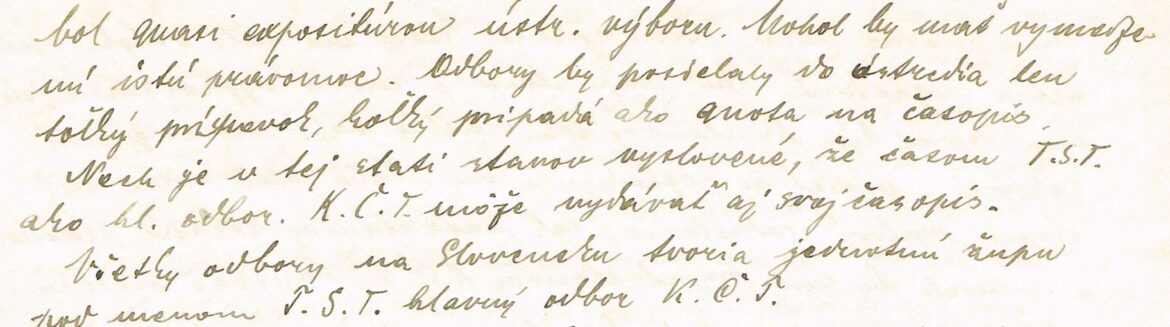 bol quasi expositúrou ústr. výboru. Mohol by mať vymedze
nú istú právomoc. Odbory by posielaly do ústredia len
toľký príspevok, koľký pripadá ako quota na časopis.
Nech je v tej stati stanov vyslovené, že časom T.S.T.
ako hl. odbor. K.Č.T. môže vydávať aj svoj časopis.
Všetky odbory na Slovensku tvoria jednotnú župu
pod menom T.S.T. hlavný odbor K.Č.T.